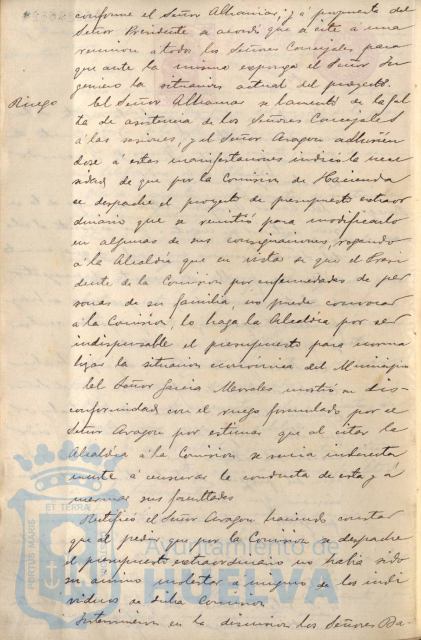 conforme el Señor Alhamar, y á propuesta del
Señor Presidente se acordó que se cite á una
reunion á todos los Señores Concejales para
que ante la misma exponga el Señor In-
geniero la situacion actual del proyecto.
Ruego
El Señor Alhamar se lamentó de la fal
ta de asistencia de los Señores Concejales
á las sesiones, y el Señor Aragon adhirien
dose á estas manifestaciones indicó la nece
sidad de que por la Comision de Hacienda
se despache el proyecto de presupuesto extraor
dinario que se remitió para modificarlo
en algunas de sus consignaciones, rogando
á la Alcaldia que en vista de que el Presi
dente de la Comision por enfermedades de per
sonas de su familia, no puede convocar
á la Comision, lo haga la Alcaldia por ser
indispensable el presupuesto para norma
lizar la situacion económica del Municipio
El Señor Garcia Morales mostró su dis-
conformidad con el ruego formulado por el
Señor Aragon por estimar que al citar la
Alcaldia á la Comision se venia indirecta
mente á censurar la conducta de esta y á
mermar sus facultades
Rectificó el Señor Aragon haciendo constar
que al pedir que por la Comision se despache
el presupuesto extraordinario no habia sido
su animo molestar á ninguno de los indi
viduos de dicha Comision
Intervinieron en la discusion los Señores Ba-
ET TERRA
PORTUS MARIS
Ayuntamiento de
HUELVA